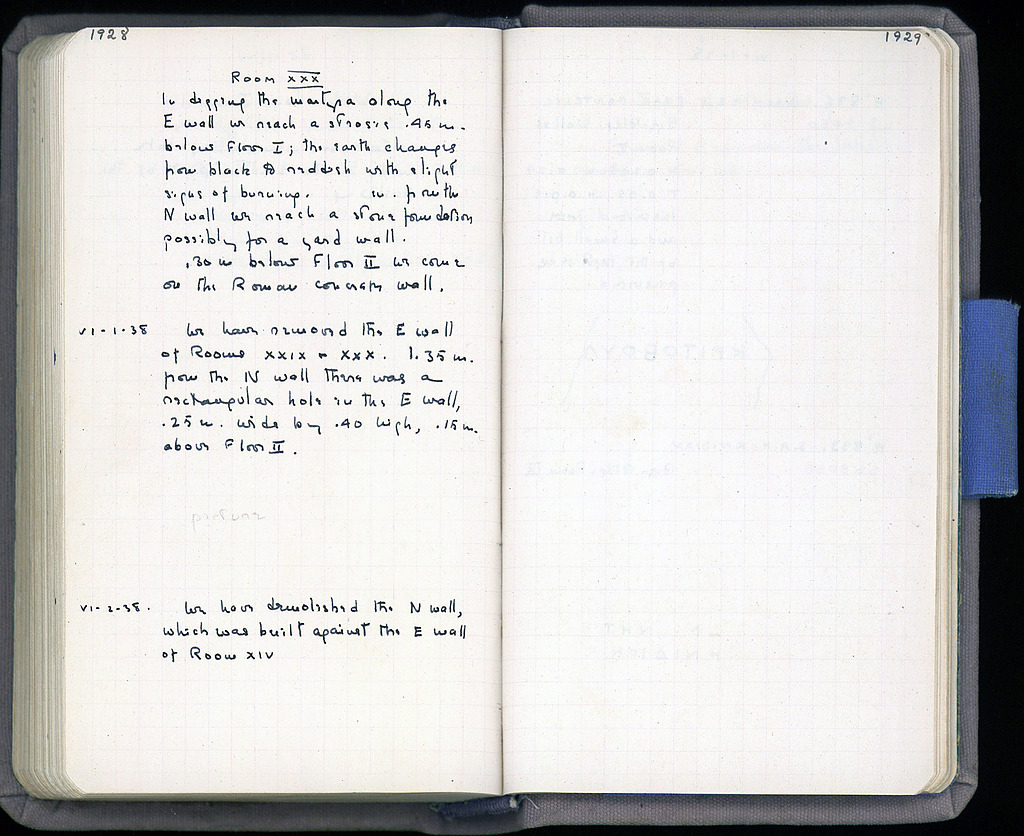 1928
Room XXX
In digging the martyra along the
E wall we reach a strosis .45 m.
below Floor I; the earth changes
from black to reddish with slight
signs of burning. m. from the
N wall we reach a stone foundation
possibly for a yard wall.
.30 m below Floor II we come
on the Roman concrete wall.
VI-1-38 We have removed the E wall
of Rooms XXIX + XXX. 1.35 m.
from the N wall there was a
rectangular hole in the E wall,
.25 m. wide by .40 high, .15 m.
above Floor II.
picture
VI-2-38. We have demolished the N wall,
which was built against the E wall
of Room XIV
1929